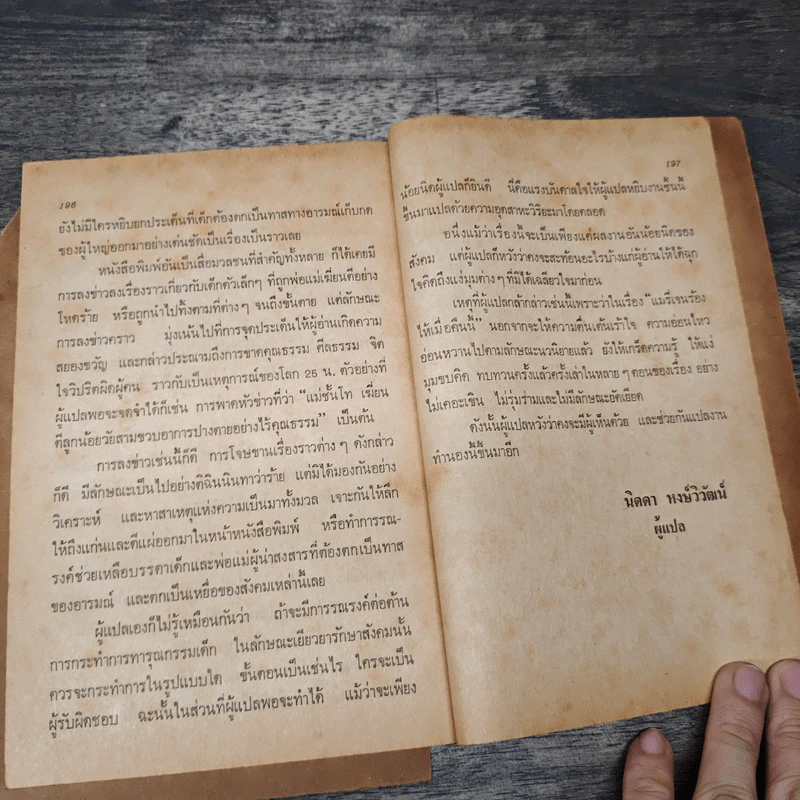 196
ยังไม่มีใครหยิบยกประเด็นที่เด็กต้องตกเป็นทาสทางอารมณ์เก็บกด
ของผู้ใหญ่ออกมาอย่างเด่นชัดเป็นเรื่องเป็นราวเลย
หนังสือพิมพ์อันเป็นสื่อมวลชนที่สำคัญทั้งหลาย ก็ได้เคยมี
การลงข่าวลงเรื่องราวเกี่ยวกับเด็กตัวเล็กๆ ที่ถูกพ่อแม่เฆี่ยนตีอย่าง
โหดร้าย หรือถูกนำไปทิ้งตามที่ต่างๆ จนถึงขั้นตาย แต่ลักษณะ
การลงข่าวคราว มุ่งเน้นไปที่การจุดประเด็นให้ผู้อ่านเกิดความ
สยองขวัญ และกล่าวประณามถึงการขาดคุณธรรม ศีลธรรม จิต
ใจวิปริตผิดผู้คน ราวกับเป็นเหตุการณ์ของโลก 25 น. ตัวอย่างที่
ผู้แปลพอจะจดจำได้ก็เช่น การพาดหัวข่าวที่ว่า "แม่ชั้นโท เฆี่ยน
ตีลูกน้อยวัยสามขวบอาการปางตายอย่างไร้คุณธรรม" เป็นต้น
การลงข่าวเช่นนี้ก็ดี การโจษขานเรื่องราวต่างๆ ดังกล่าว
ก็ดี มีลักษณะเป็นไปอย่างติฉินนินทาว่าร้าย แต่มิได้มองกันอย่าง
วิเคราะห์ และหาสาเหตุแห่งความเป็นมาทั้งมวล เจาะกันให้ลึก
ให้ถึงแก่นและตีแผ่ออกมาในหน้าหนังสือพิมพ์ หรือทำการรณ-
รงค์ช่วยเหลือบรรดาเด็กและพ่อแม่ผู้น่าสงสารที่ต้องตกเป็นทาส
ของอารมณ์ และตกเป็นเหยื่อของสังคมเหล่านี้เลย
ผู้แปลเองก็ไม่รู้เหมือนกันว่า ถ้าจะมีการรณรงค์ต่อต้าน
การกระทำการทารุณกรรมเด็ก ในลักษณะเยียวยารักษาสังคมนั้น
ควรจะกระทำการในรูปแบบใด ขั้นตอนเป็นเช่นไร ใครจะเป็น
ผู้รับผิดชอบ ฉะนั้นในส่วนที่ผู้แปลพอจะทำได้ แม้ว่าจะเพียง
197
น้อยนิดผู้แปลก็ยินดี นี่คือแรงบันดาลใจให้ผู้แปลหยิบงานชิ้นนี้
ขึ้นมาแปลด้วยความอุตสาหะวิริยะมาโดยตลอด
อนึ่งแม้ว่าเรื่องนี้จะเป็นเพียงแค่ผลงานอันน้อยนิดของ
สังคม แต่ผู้แปลก็หวังว่าคงจะสะท้อนอะไรบ้างแก่ผู้อ่านให้ได้ฉุก
ใจคิดถึงแง่มุมต่างๆที่มิได้เฉลียวใจมาก่อน
เหตุที่ผู้แปลกล้ากล่าวเช่นนี้เพราะว่าในเรื่อง "แมรี่เจนร้อง
ไห้เมื่อคืนนี้" นอกจากจะให้ความตื่นเต้นเร้าใจ ความอ่อนไหว
อ่อนหวานไปตามลักษณะนวนิยายแล้ว ยังให้เกร็ดความรู้ ให้แง่
มุมขบคิด ทบทวนครั้งแล้วครั้งเล่าในหลายๆตอนของเรื่อง อย่าง
ไม่เคอะเขิน ไม่รุ่มร่ามและไม่มีลักษณะยัดเยียด
ดังนั้นผู้แปลหวังว่าคงจะมีผู้เห็นด้วย และช่วยกันแปลงาน
ทำนองนี้ขึ้นมาอีก
นิดดา หงษ์วิวัฒน์
ผู้แปล